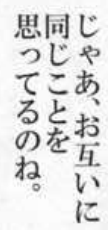 じゃあ、お互いに
同じことを
思ってるのね。